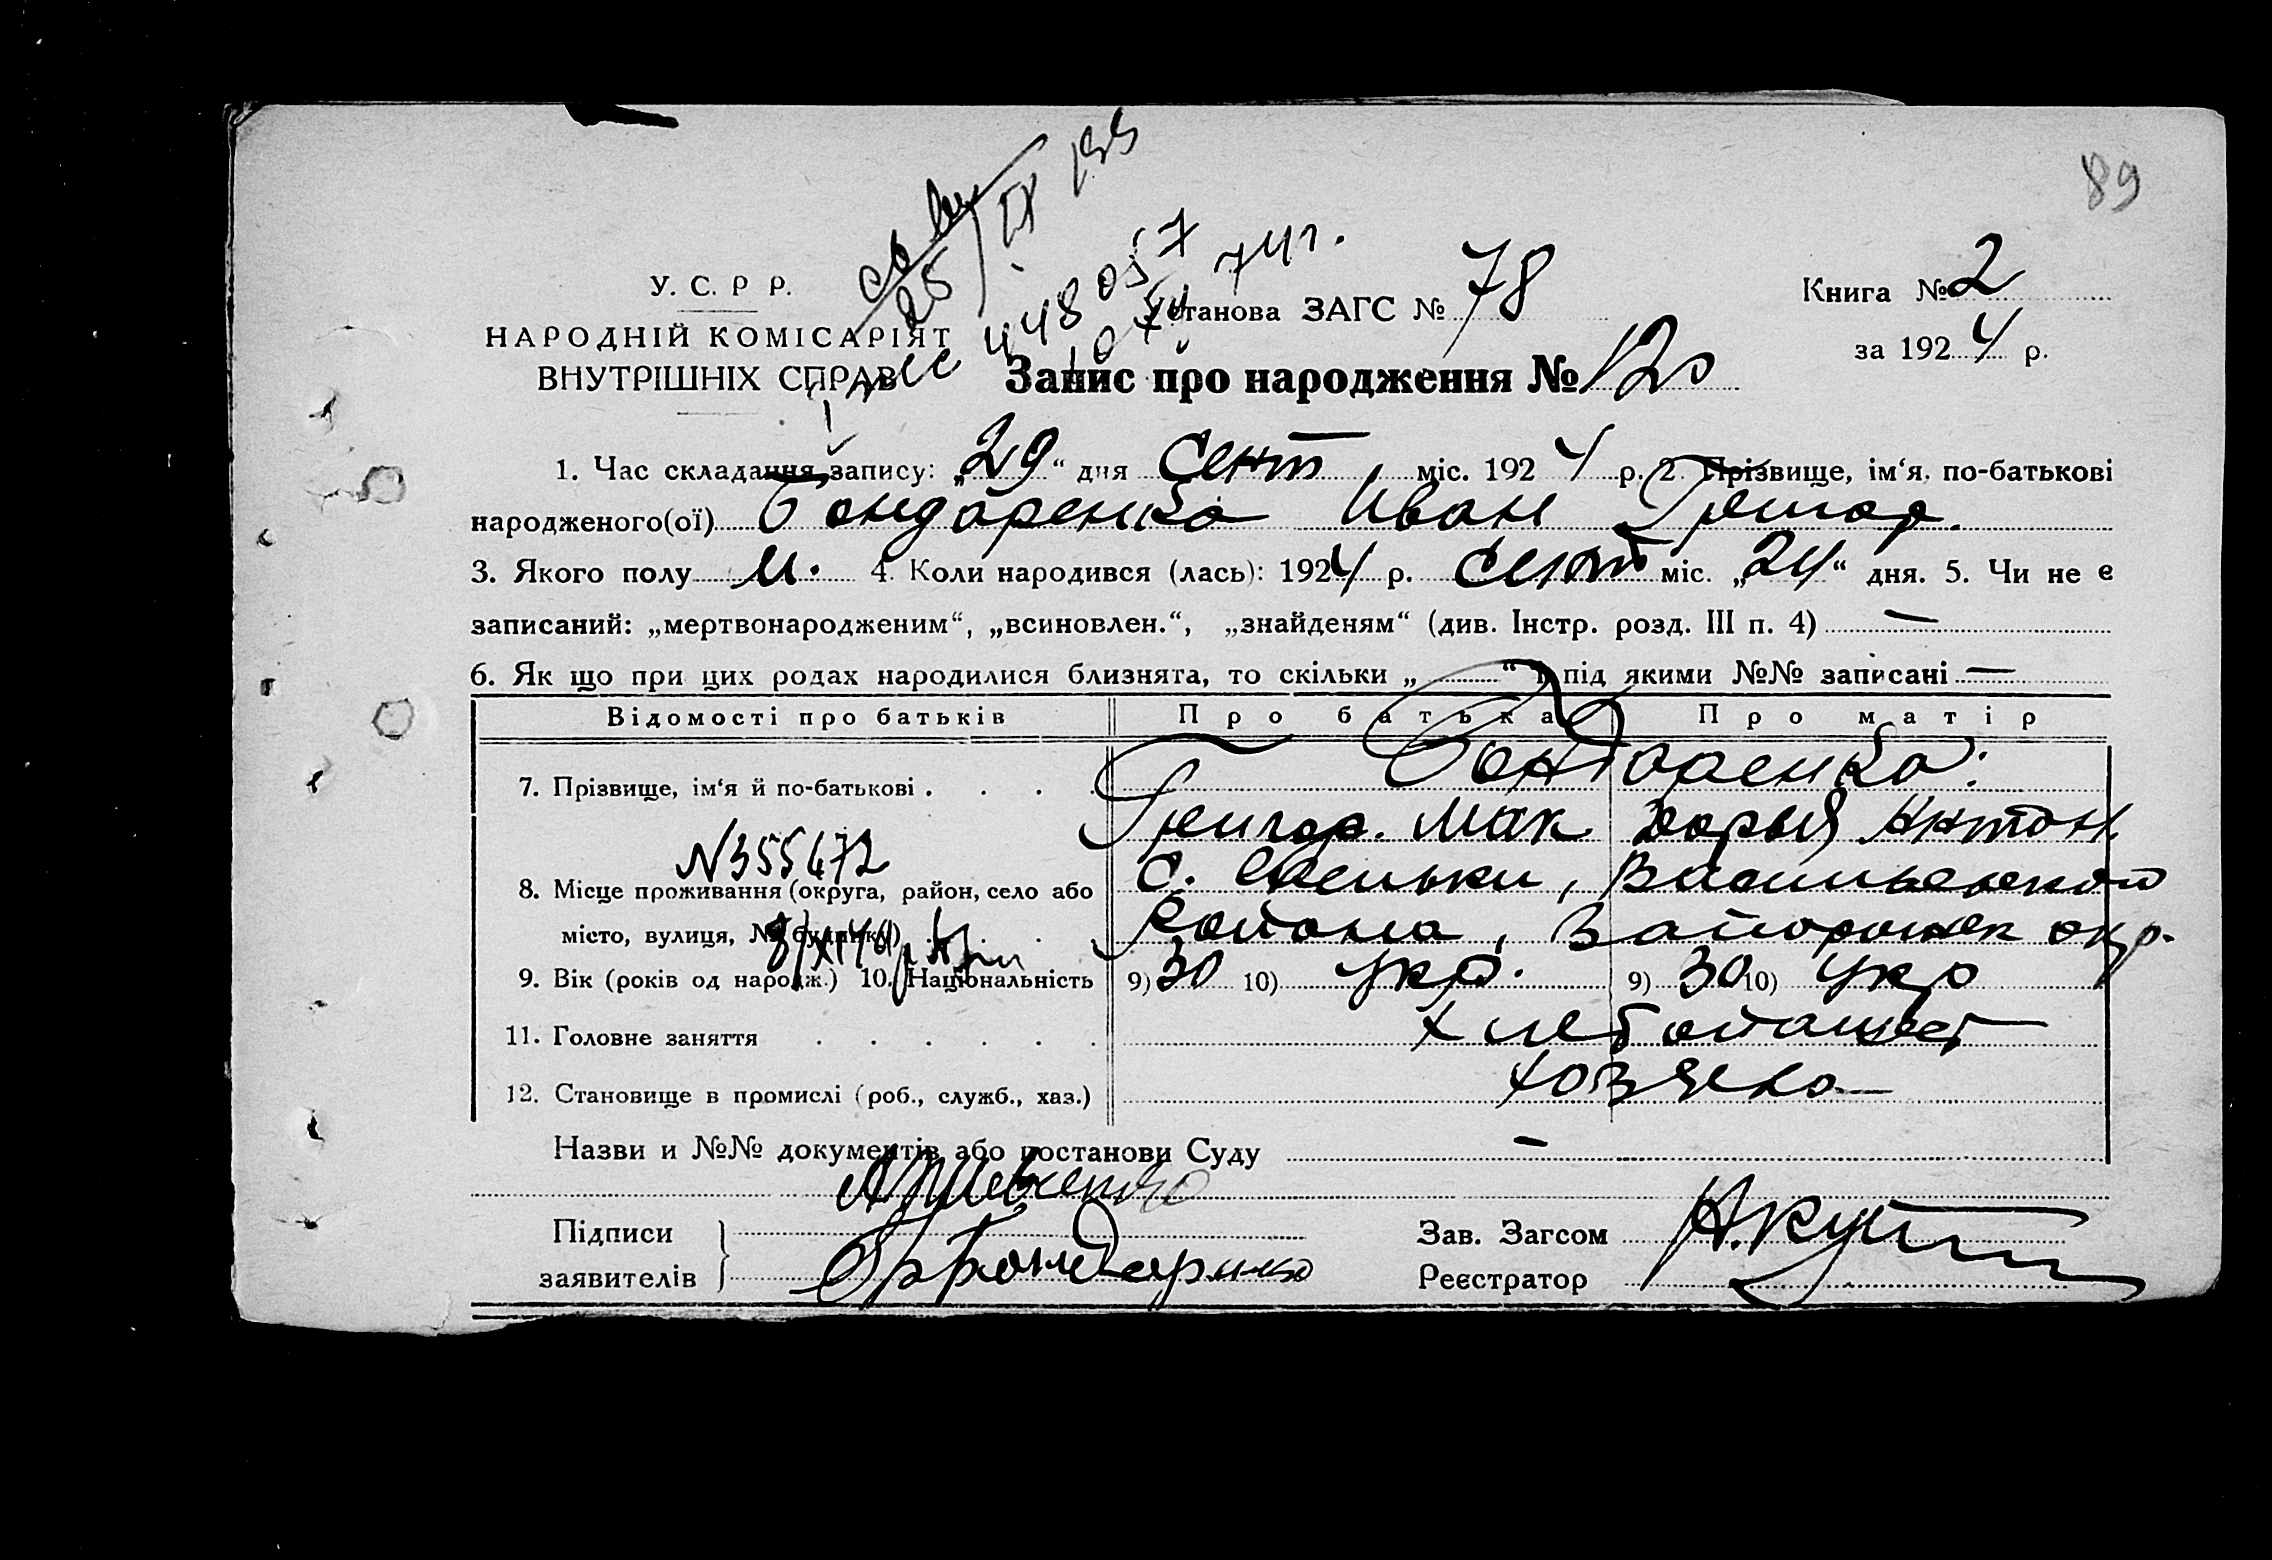 89
У. С. Р Р.
НАРОДНІЙ КОМІСАРІЯТ
ВНУТРІШНІХ СПРАВ
25/IX
448057
74 г.
Установа ЗАГС № 78
Книга № 2
за 1924 р.
Запис про народження № 120
1. Час складання запису: „29“ дня Сент міс. 1924 р. 2. Прізвище, ім‘я, по-батькові
народженого(ої) Бондаренко Иван Григор.
3. Якого полу М. 4. Коли народився (лась): 1924 р. Сент міс. „24“ дня. 5. Чи не є
записаний: „мертвонародженим“, „всиновлен.“, „знайденям“ (див. Інстр. розд. III п. 4) —
6. Як що при цих родах народилися близнята, то скільки „ “ і під якими №№ записані —
Відомості про батьків Про батька Про матір
7. Прізвище, ім‘я й по-батькові . . . . Бондаренко:
Григор. Мак Дарья Антон
N355472
8. Місце проживання (округа, район, село або С. Скельки, Васильевского
місто, вулиця, № будинку) . . . . района, Запорожск окр.
9. Вік (років од народж.) 10. Національність 9) 30 10) укр. 9) 30 10) укр
11. Головне заняття . . . . . . хлебопашест
12. Становище в промислі (роб., служб., хаз.) хозяева
Назви и №№ документів або постанови Суду —
АШевченко
Підписи
заявителів
Гр Бондаринко
Зав. Загсом
Реєстратор